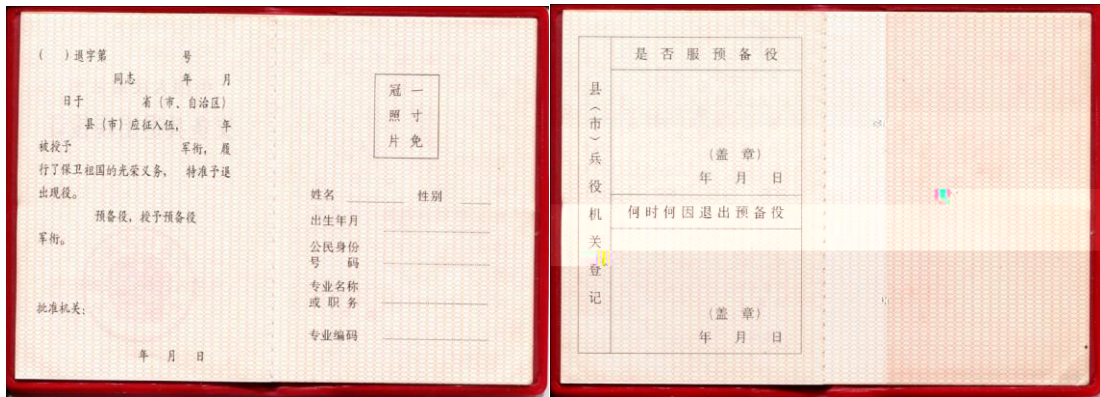 ( )退字第 号
同志 年 月
日于 省(市、自治区)
县(市)应征入伍, 年
被授予 军衔, 履
行了保卫祖国的光荣义务, 特准予退
出现役。
预备役,授予预备役
军衔。
批准机关:
年 月 日
冠 一
照 寸
片 免
姓名 性别
出生年月
公民身份
号 码
专业名称
或 职 务
专业编码
县(市)兵役机关登记
是否服预备役
(盖 章)
年 月 日
何时何因退出预备役
(盖 章)
年 月 日